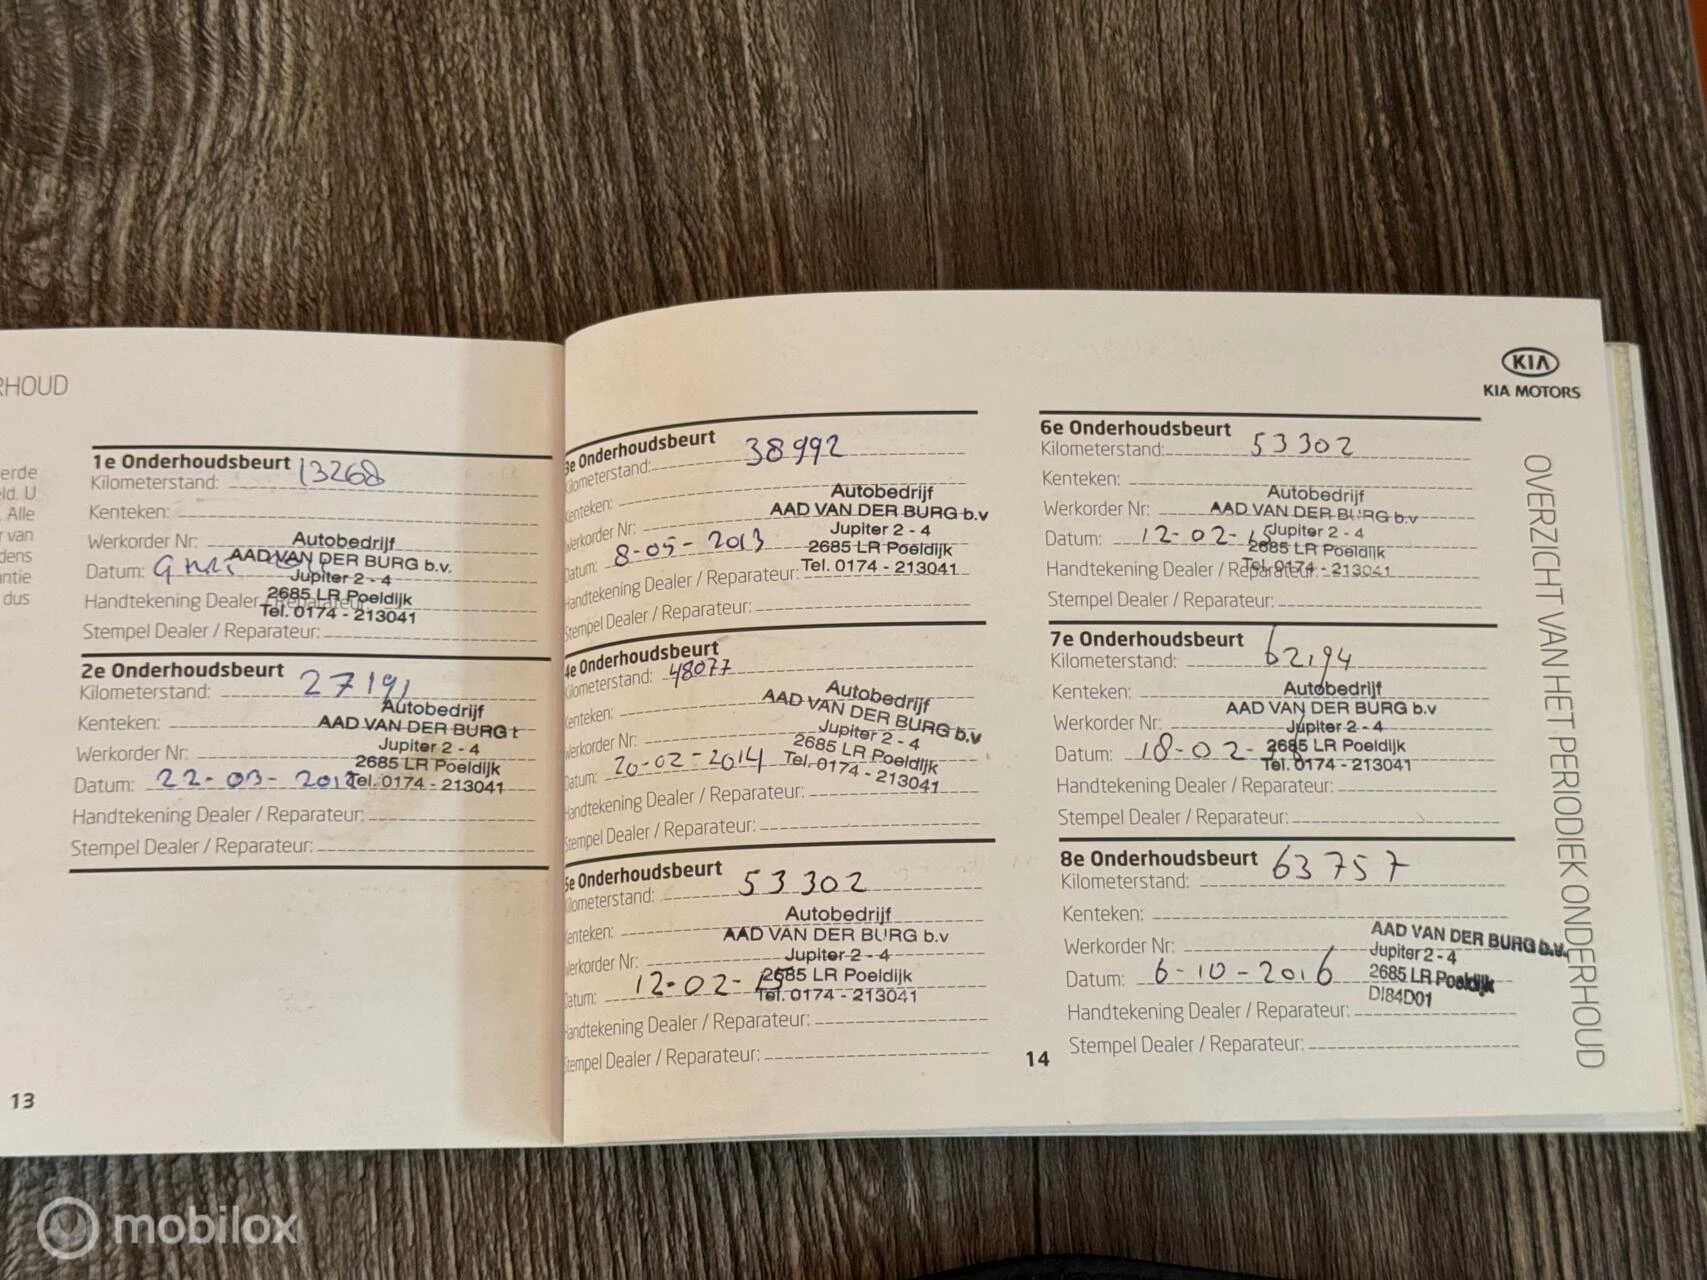 RHOUD
erde
eld. U
Alle
r van
dens
antie
dus
1e Onderhoudsbeurt
Kilometerstand: 13268
Kenteken:
Werkorder Nr:
Datum: 9
Handtekening Dealer / Reparateur:
Stempel Dealer / Reparateur:
Autobedrijf
AAD VAN DER BURG b.v.
Jupiter 2 - 4
2685 LR Poeldijk
Tel. 0174 - 213041
2e Onderhoudsbeurt
Kilometerstand: 27191
Kenteken:
Werkorder Nr:
Datum: 22-03-2012
Handtekening Dealer / Reparateur:
Stempel Dealer / Reparateur:
Autobedrijf
AAD VAN DER BURG
Jupiter 2 - 4
2685 LR Poeldijk
Tel. 0174 - 213041
13
3e Onderhoudsbeurt
Kilometerstand: 38992
Kenteken:
Werkorder Nr:
Datum: 8-05-2013
Handtekening Dealer / Reparateur:
Stempel Dealer / Reparateur:
Autobedrijf
AAD VAN DER BURG b.v
Jupiter 2 - 4
2685 LR Poeldijk
Tel. 0174 - 213041
4e Onderhoudsbeurt
Kilometerstand: 48077
Kenteken:
Werkorder Nr:
Datum: 20-02-2014
Handtekening Dealer / Reparateur:
Stempel Dealer / Reparateur:
Autobedrijf
AAD VAN DER BURG b.v
Jupiter 2 - 4
2685 LR Poeldijk
Tel. 0174 - 213041
5e Onderhoudsbeurt
Kilometerstand: 53302
Kenteken:
Werkorder Nr:
Datum: 12-02-15
Handtekening Dealer / Reparateur:
Stempel Dealer / Reparateur:
Autobedrijf
AAD VAN DER BURG b.v
Jupiter 2 - 4
2685 LR Poeldijk
Tel. 0174 - 213041
14
KIA
KIA MOTORS
6e Onderhoudsbeurt
Kilometerstand: 53302
Kenteken:
Werkorder Nr:
Datum: 12-02-15
Handtekening Dealer / Reparateur:
Stempel Dealer / Reparateur:
Autobedrijf
AAD VAN DER BURG b.v
Jupiter 2 - 4
2685 LR Poeldijk
Tel. 0174 - 213041
7e Onderhoudsbeurt
Kilometerstand: 62194
Kenteken:
Werkorder Nr:
Datum: 18-02-
Handtekening Dealer / Reparateur:
Stempel Dealer / Reparateur:
Autobedrijf
AAD VAN DER BURG b.v
Jupiter 2 - 4
2685 LR Poeldijk
Tel. 0174 - 213041
8e Onderhoudsbeurt
Kilometerstand: 63757
Kenteken:
Werkorder Nr:
Datum: 6-10-2016
Handtekening Dealer / Reparateur:
Stempel Dealer / Reparateur:
AAD VAN DER BURG b.v.
Jupiter 2 - 4
2685 LR Poeldijk
DI84D01
OVERZICHT VAN HET PERIODIEK ONDERHOUD
mobilox